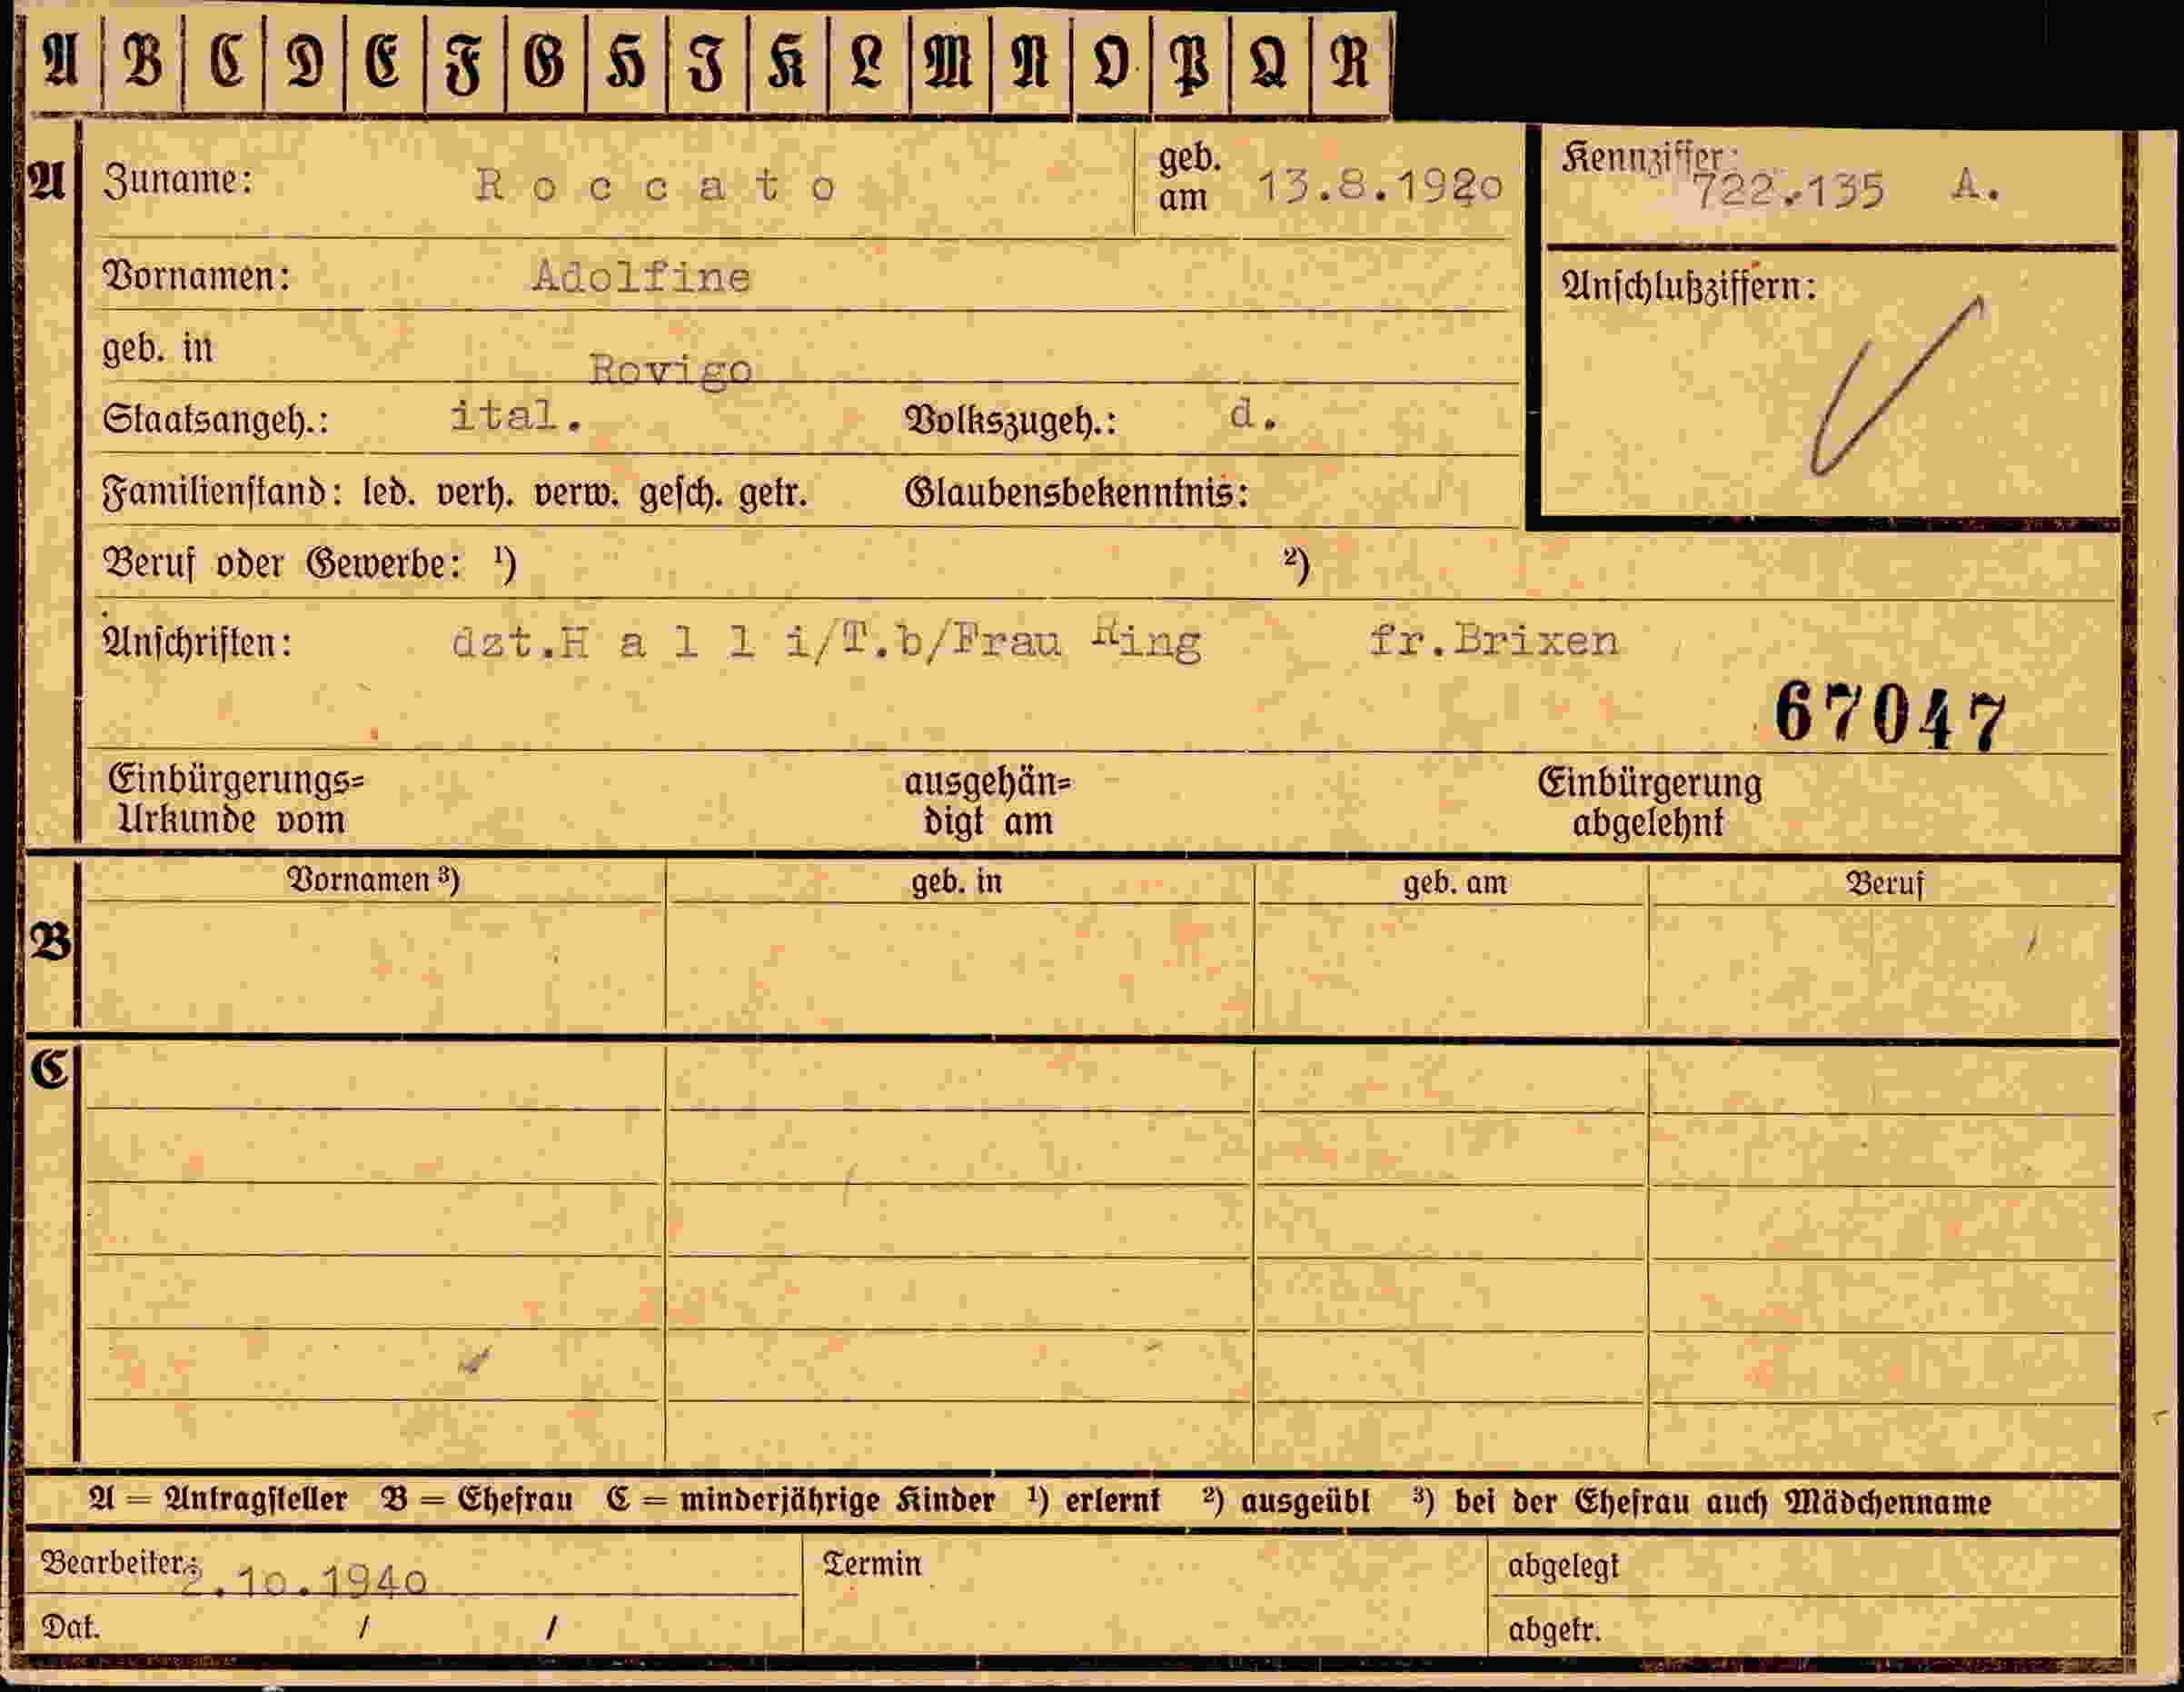 A B C D E F G H I K L M N O P Q R
A Zuname: Roccato geb. am 13.8.1920 Kennziffer: 722.135 A.
Vornamen: Adolfine Anschlußziffern:
geb. in Rovigo
Staatsangeh.: ital. Volkszugeh.: d.
Familienstand: led. verh. verw. gesch. getr. Glaubensbekenntnis:
Beruf oder Gewerbe: ¹) ²)
Anschriften: dzt.H a l l i/T.b/Frau Ring fr.Brixen
67047
Einbürgerungs= ausgehän= Einbürgerung
Urkunde vom digt am abgelehnt
Vornamen ³) geb. in geb. am Beruf
B
C
A = Antragsteller B = Ehefrau C = minderjährige Kinder ¹) erlernt ²) ausgeübt ³) bei der Ehefrau auch Mädchenname
Bearbeiter: 2.10.1940 Termin abgelegt
Dat. / / abgetr.